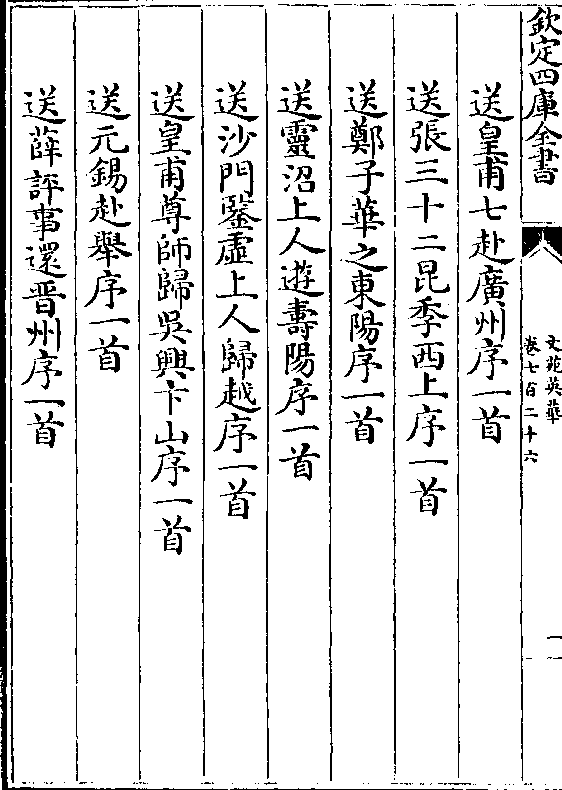 欽定四庫全書
文苑英華
卷七百二十六
一
送皇甫七赴廣州序一首
送張三十二昆季西上序一首
送鄭子華之東陽序一首
送靈沼上人遊壽陽序一首
送沙門鑒虛上人歸越序一首
送皇甫尊師歸吳興卞山序一首
送元錫赴舉序一首
送薛評事還晉州序一首